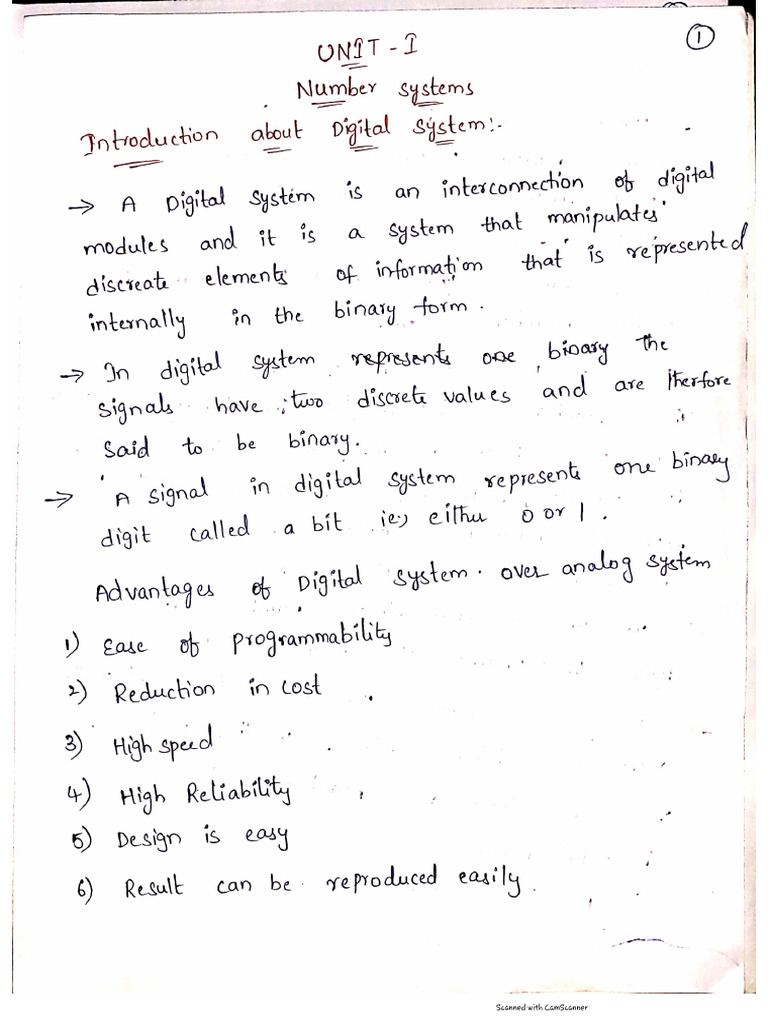 1
UNIT - I
Number systems
Introduction about Digital System:-
→ A Digital system is an interconnection of digital
modules and it is a system that manipulates
discreate elements of information that is represented
internally in the binary form.
→ In digital system represents one binary the
signals have two discrete values and are therfore
said to be binary.
→ A signal in digital system represents one binary
digit called a bit ie., either 0 or 1.
Advantages of Digital system. over analog system
1) Ease of programmability
2) Reduction in cost
3) High speed
4) High Reliability
5) Design is easy
6) Result can be reproduced easily.
Scanned with CamScanner